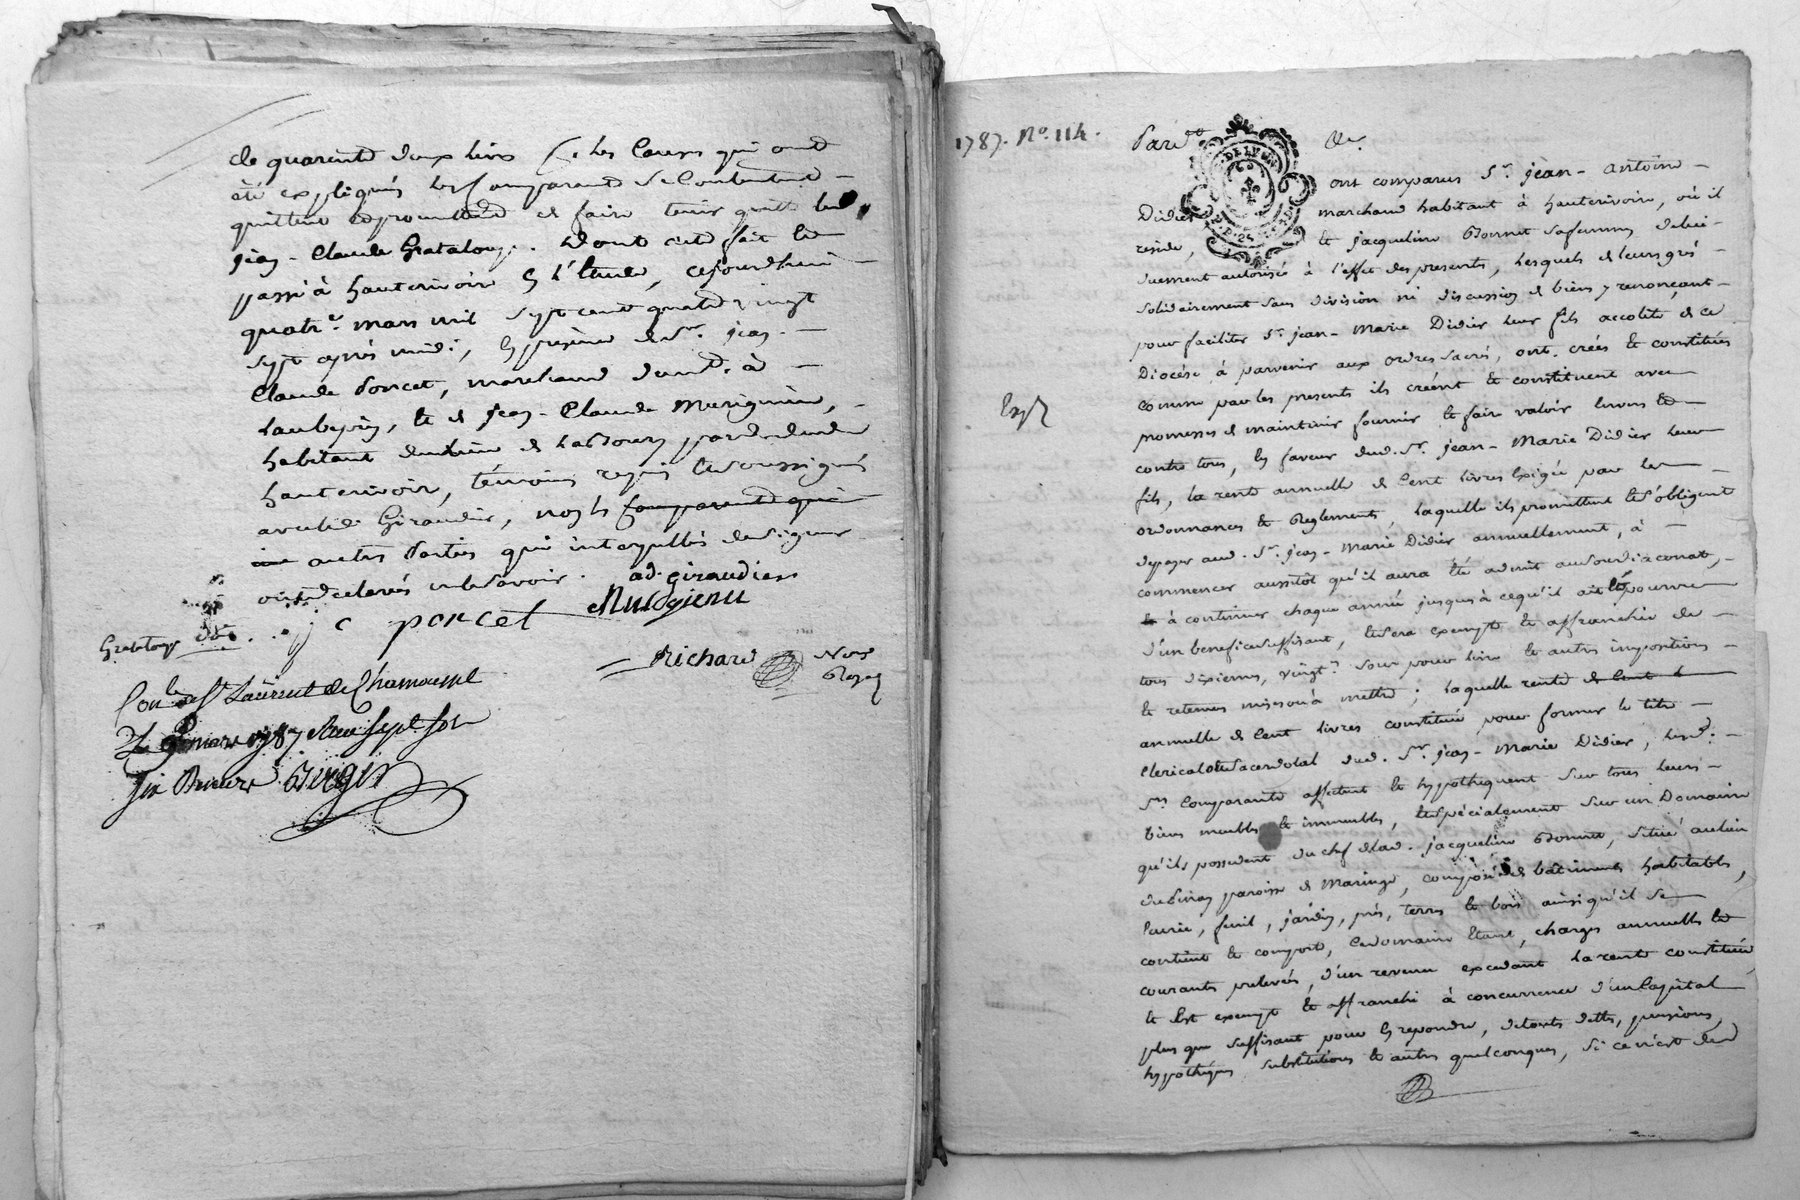 de quarente deux livres les causes qui ont
été expliqués les comparants se contentent
quittent et promettent de faire tenir quitte led.
jean - Claude Grataloup. Dont acte fait et
passé à hauterivoire en l'étude, cejourdhui
quatre mars mil sept cent quatre vingt
sept après midi, en présence de Sr. jean -
Claude Poncet, marchand demt. à
haubépin, et de jean - Claude
habitant
hauterivoire, témoins requis et soussignés
avec lad. Giraudier, non les comparants qui
autres Parties qui interpellés de signer
ont déclarés ne le savoir. ad. giraudier
j c poncet
Grataloup doit
Richard Nore
Royal
Con lé à St Laurent de Chamousset
Le mars 1787 Reçu sept sols
six Deniers
1787. No. 114.
Pardt &c.
ont comparus Sr. jean - antoine
Didier marchand habitant à hauterivoire, où il
reside, et jacqueline Bonnet sa femme de lui
duement autorisée à l'effet des presentes, lesquels de leurs grés
solidairement sans division ni discussion de biens y renonçant
pour faciliter Sr. jean - Marie Didier leur fils accolite de ce
Diocése à parvenir aux ordres sacrés, ont créés et constitués
comme par les presentes ils créent et constituent avec
Expé
promesses de maintenir fournir et faire valoir envers et
contre tous, en faveur dud. Sr. jean - Marie Didier leur
fils, la rente annuelle de Cent livres Exigée par les
ordonnances et Reglements, laquelle ils promettent et s'obligent
de payer aud. Sr. jean - Marie Didier annuellement, à
commencer aussitôt qu'il aura été admit au soudiaconat,
et à continuer chaque année jusques à ce qu'il ait été pourvu
d'un benefice suffisant, et sera exempte et affranchie de
tous dixiemes, vingt. sous pour livre et autres impositions
et retenues mises ou à mettre; laquelle rente de Cent
annuelle de Cent livres constituée pour former le titre
Clerical et Sacerdotal dud. Sr. jean - Marie Didier, lesd.
Srs Comparants affectent et hypothequent sur tous leurs
biens meubles et immeubles, et spécialement sur un Domaine
qu'ils possedent du chef de lad. jacqueline Bonnet, situé au lieu
paroisse de Maringe, composé de bâtiments habitables,
Ecurie, fenil, jardin, prés, terres et bois ainsi qu'il se
contient et comporte, led. domaine Etant, charges annuelles et
courantes prelevées, d'un revenu excedant la rente constituée
et Est exempt et affranchi à concurrence d'un Capital
plus que suffisant pour en repondre, de toutes dettes, pensions,
hypothèques substitutions et autres quelconques, si ce n'est de